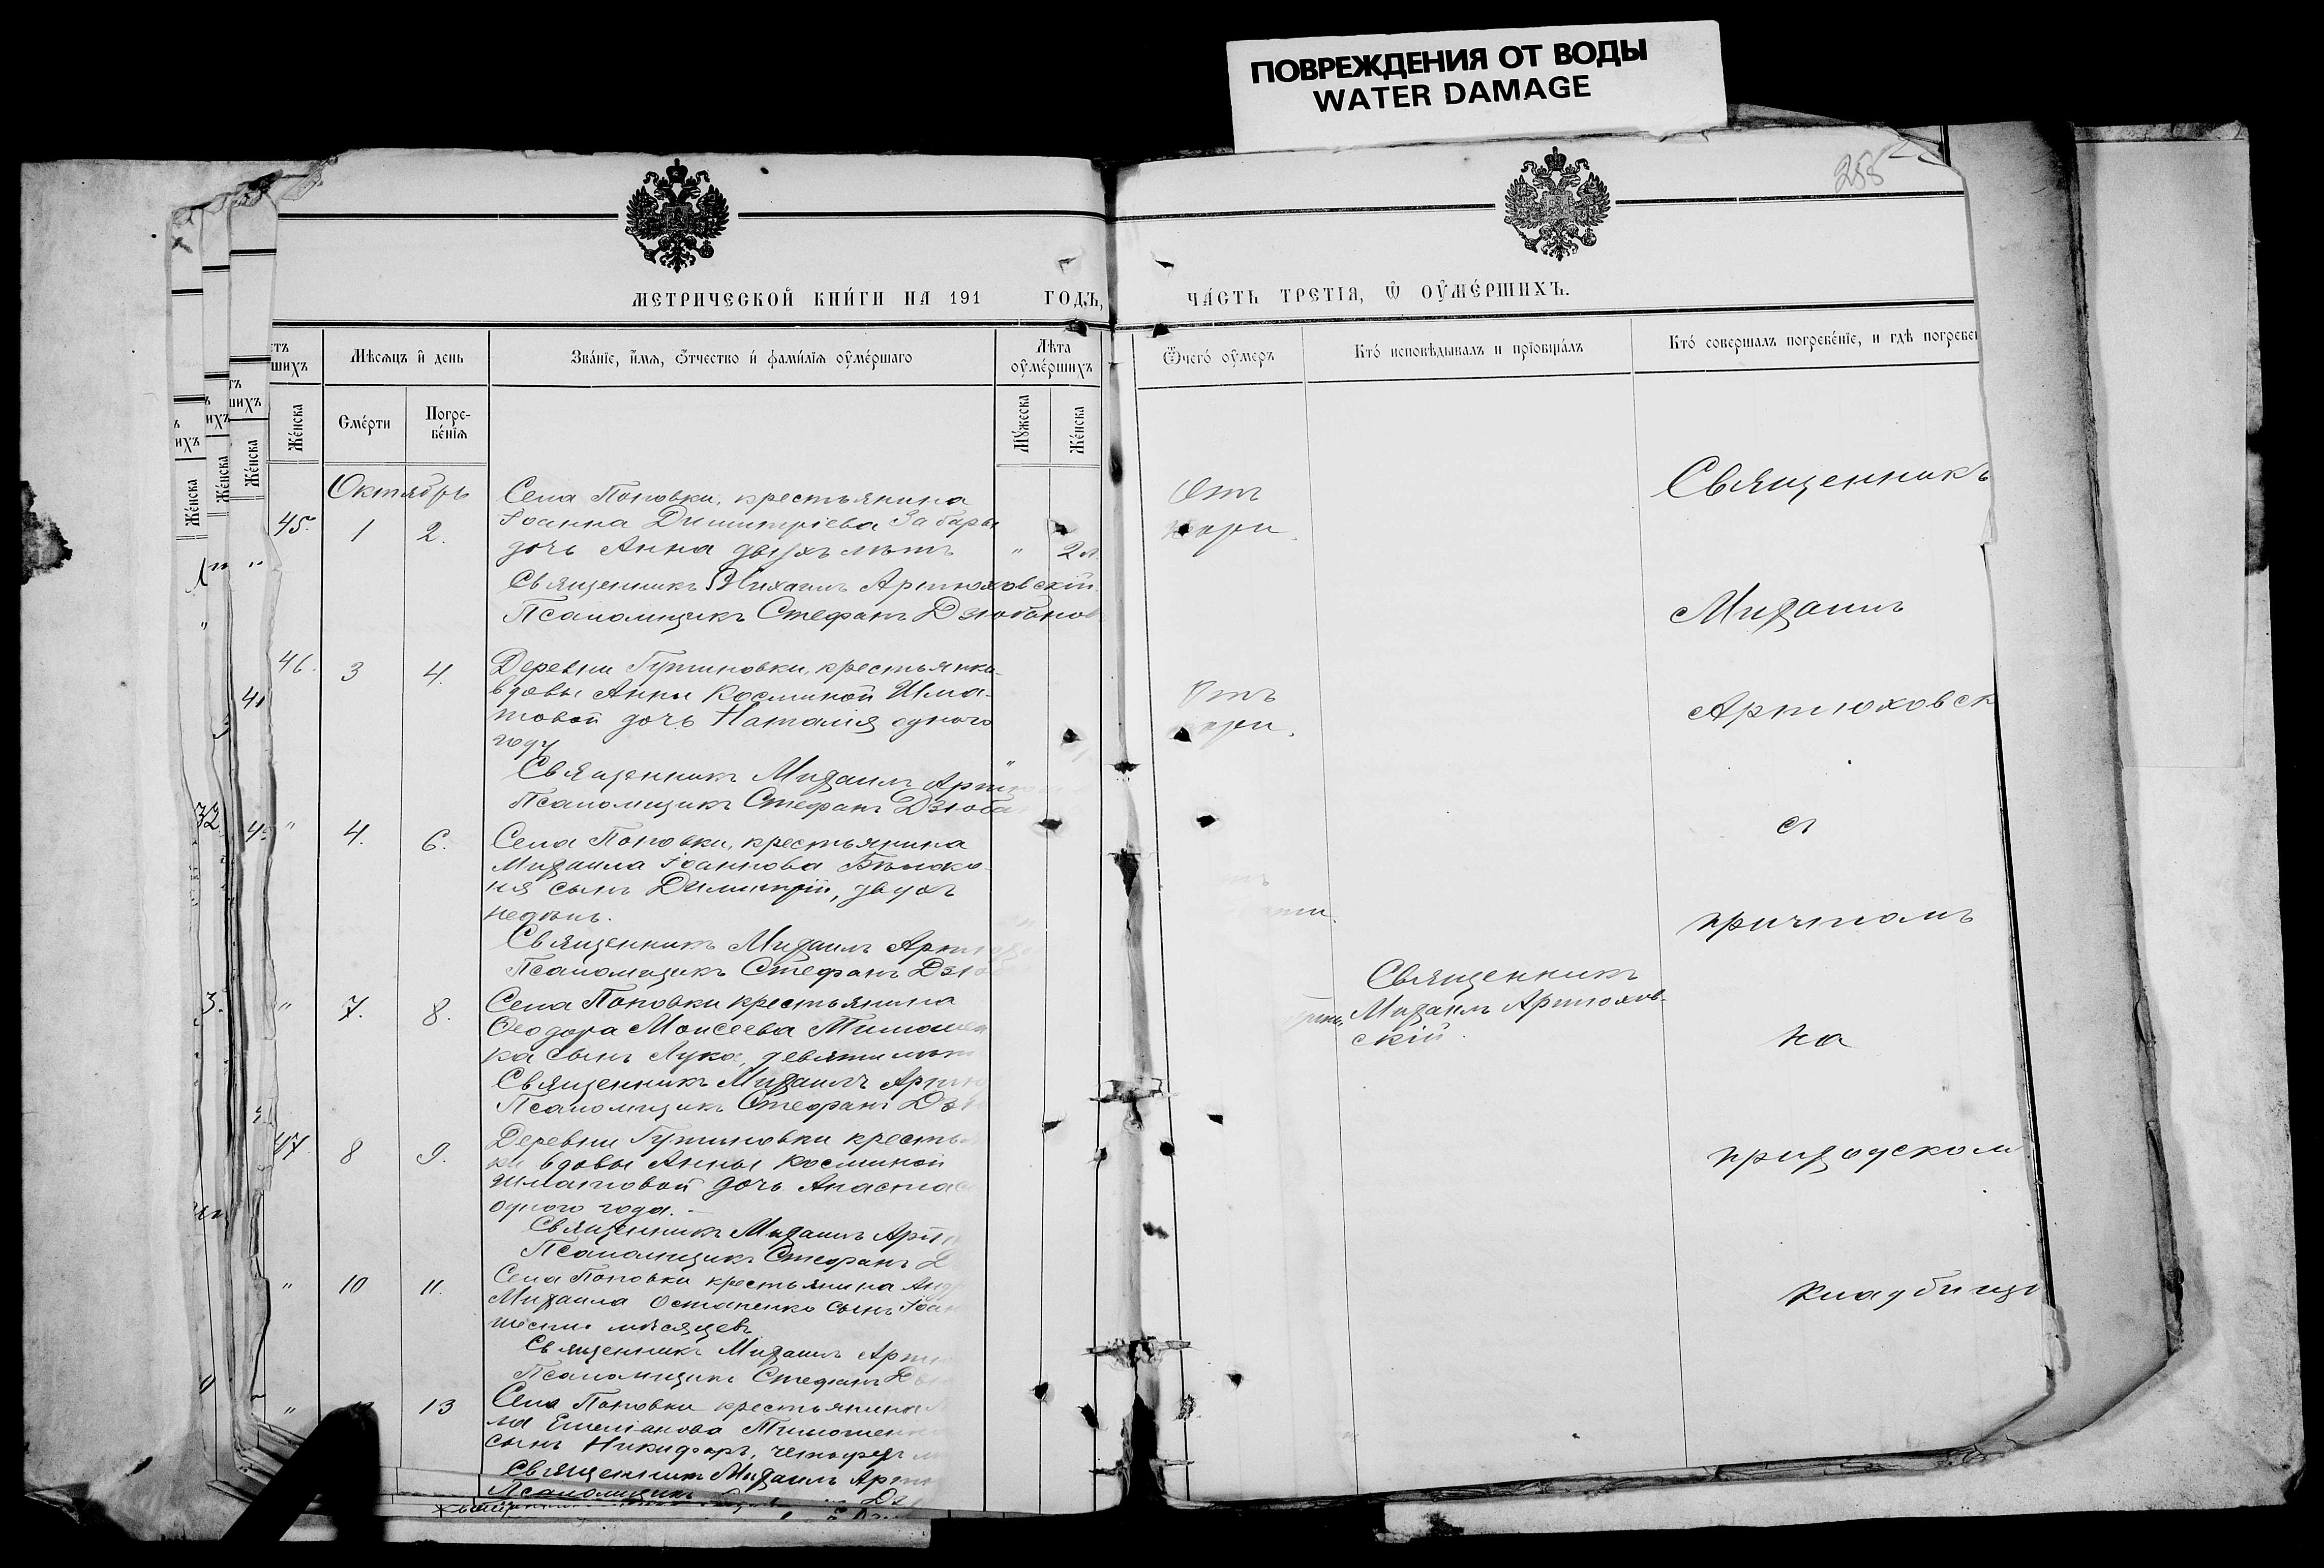 ПОВРЕЖДЕНИЯ ОТ ВОДЫ
WATER DAMAGE
255
МЕТРИЧЕСКОЙ КНИ́ГИ НА 191 ГОДЪ,
ЧА́СТЬ ТРЕТІЯ, Ѿ ОУМЕ́РШИХЪ.
Мѣсяцъ и день
Зва́ніе, и́мя, о́тчество и фами́лія оумéршаго
Лѣта оумéршихъ
Женска
Смéрти
Погре-
бéнія
Му́жеска
Жéнска
Ѿчегó оумеръ
Ктó исповѣдывалъ и пріобщáлъ
Ктó совершалъ погребéніе, и гдѣ погребе
Октябрь
45. 1 2.
Села Поповки, крестьянина
Іоанна Димитріева Забары
дочь Анна двухъ лѣтъ " 2 л.
Священникъ Михаилъ Артюховскій
Псаломщикъ Стефанъ Дзюбанов
Отъ
кори.
46. 3 4.
Деревни Гутиновки, крестьянки
вдовы Анны Косминой Шма-
товой дочь Наталія одного
году
Священникъ Михаилъ Артю
Псаломщикъ Стефанъ Дзюба
Отъ
кори.
" 4. 6.
Села Поповки, крестьянина
Михаила Іоаннова Бѣлоко
ня сынъ Димитрій, двухъ
недѣль.
Священникъ Михаилъ Артюхо
Псаломщикъ Стефанъ Дзю
" 7. 8.
Села Поповки крестьянина
Ѳеодора Моисеева Тимошен
ка сынъ Лука, девяти лѣтъ
Священникъ Михаилъ Артю
Псаломщикъ Стефанъ Дзю
Священникъ
Михаилъ Артюхов-
скій.
47. 8 9.
Деревни Гутиновки крестья
ки вдовы Анны Косминой
Шматовой дочь Анастас
одного года.
Священникъ Михаилъ Артю
Псаломщикъ Стефанъ Д
" 10 11.
Села Поповки крестьянина Анд
Михаила Остапенко сынъ Іоан
шести мѣсяцевъ
Священникъ Михаилъ Артю
Псаломщикъ Стефанъ Дз
" 13
Села Поповки крестьянина
ла Емеліанова Тимошенко
сынъ Никифоръ, четырехъ
Священникъ Михаилъ Артю
Псаломщикъ Дз
Священникъ
Михаилъ
Артюховск
съ
причтомъ
на
приходском
кладбищѣ